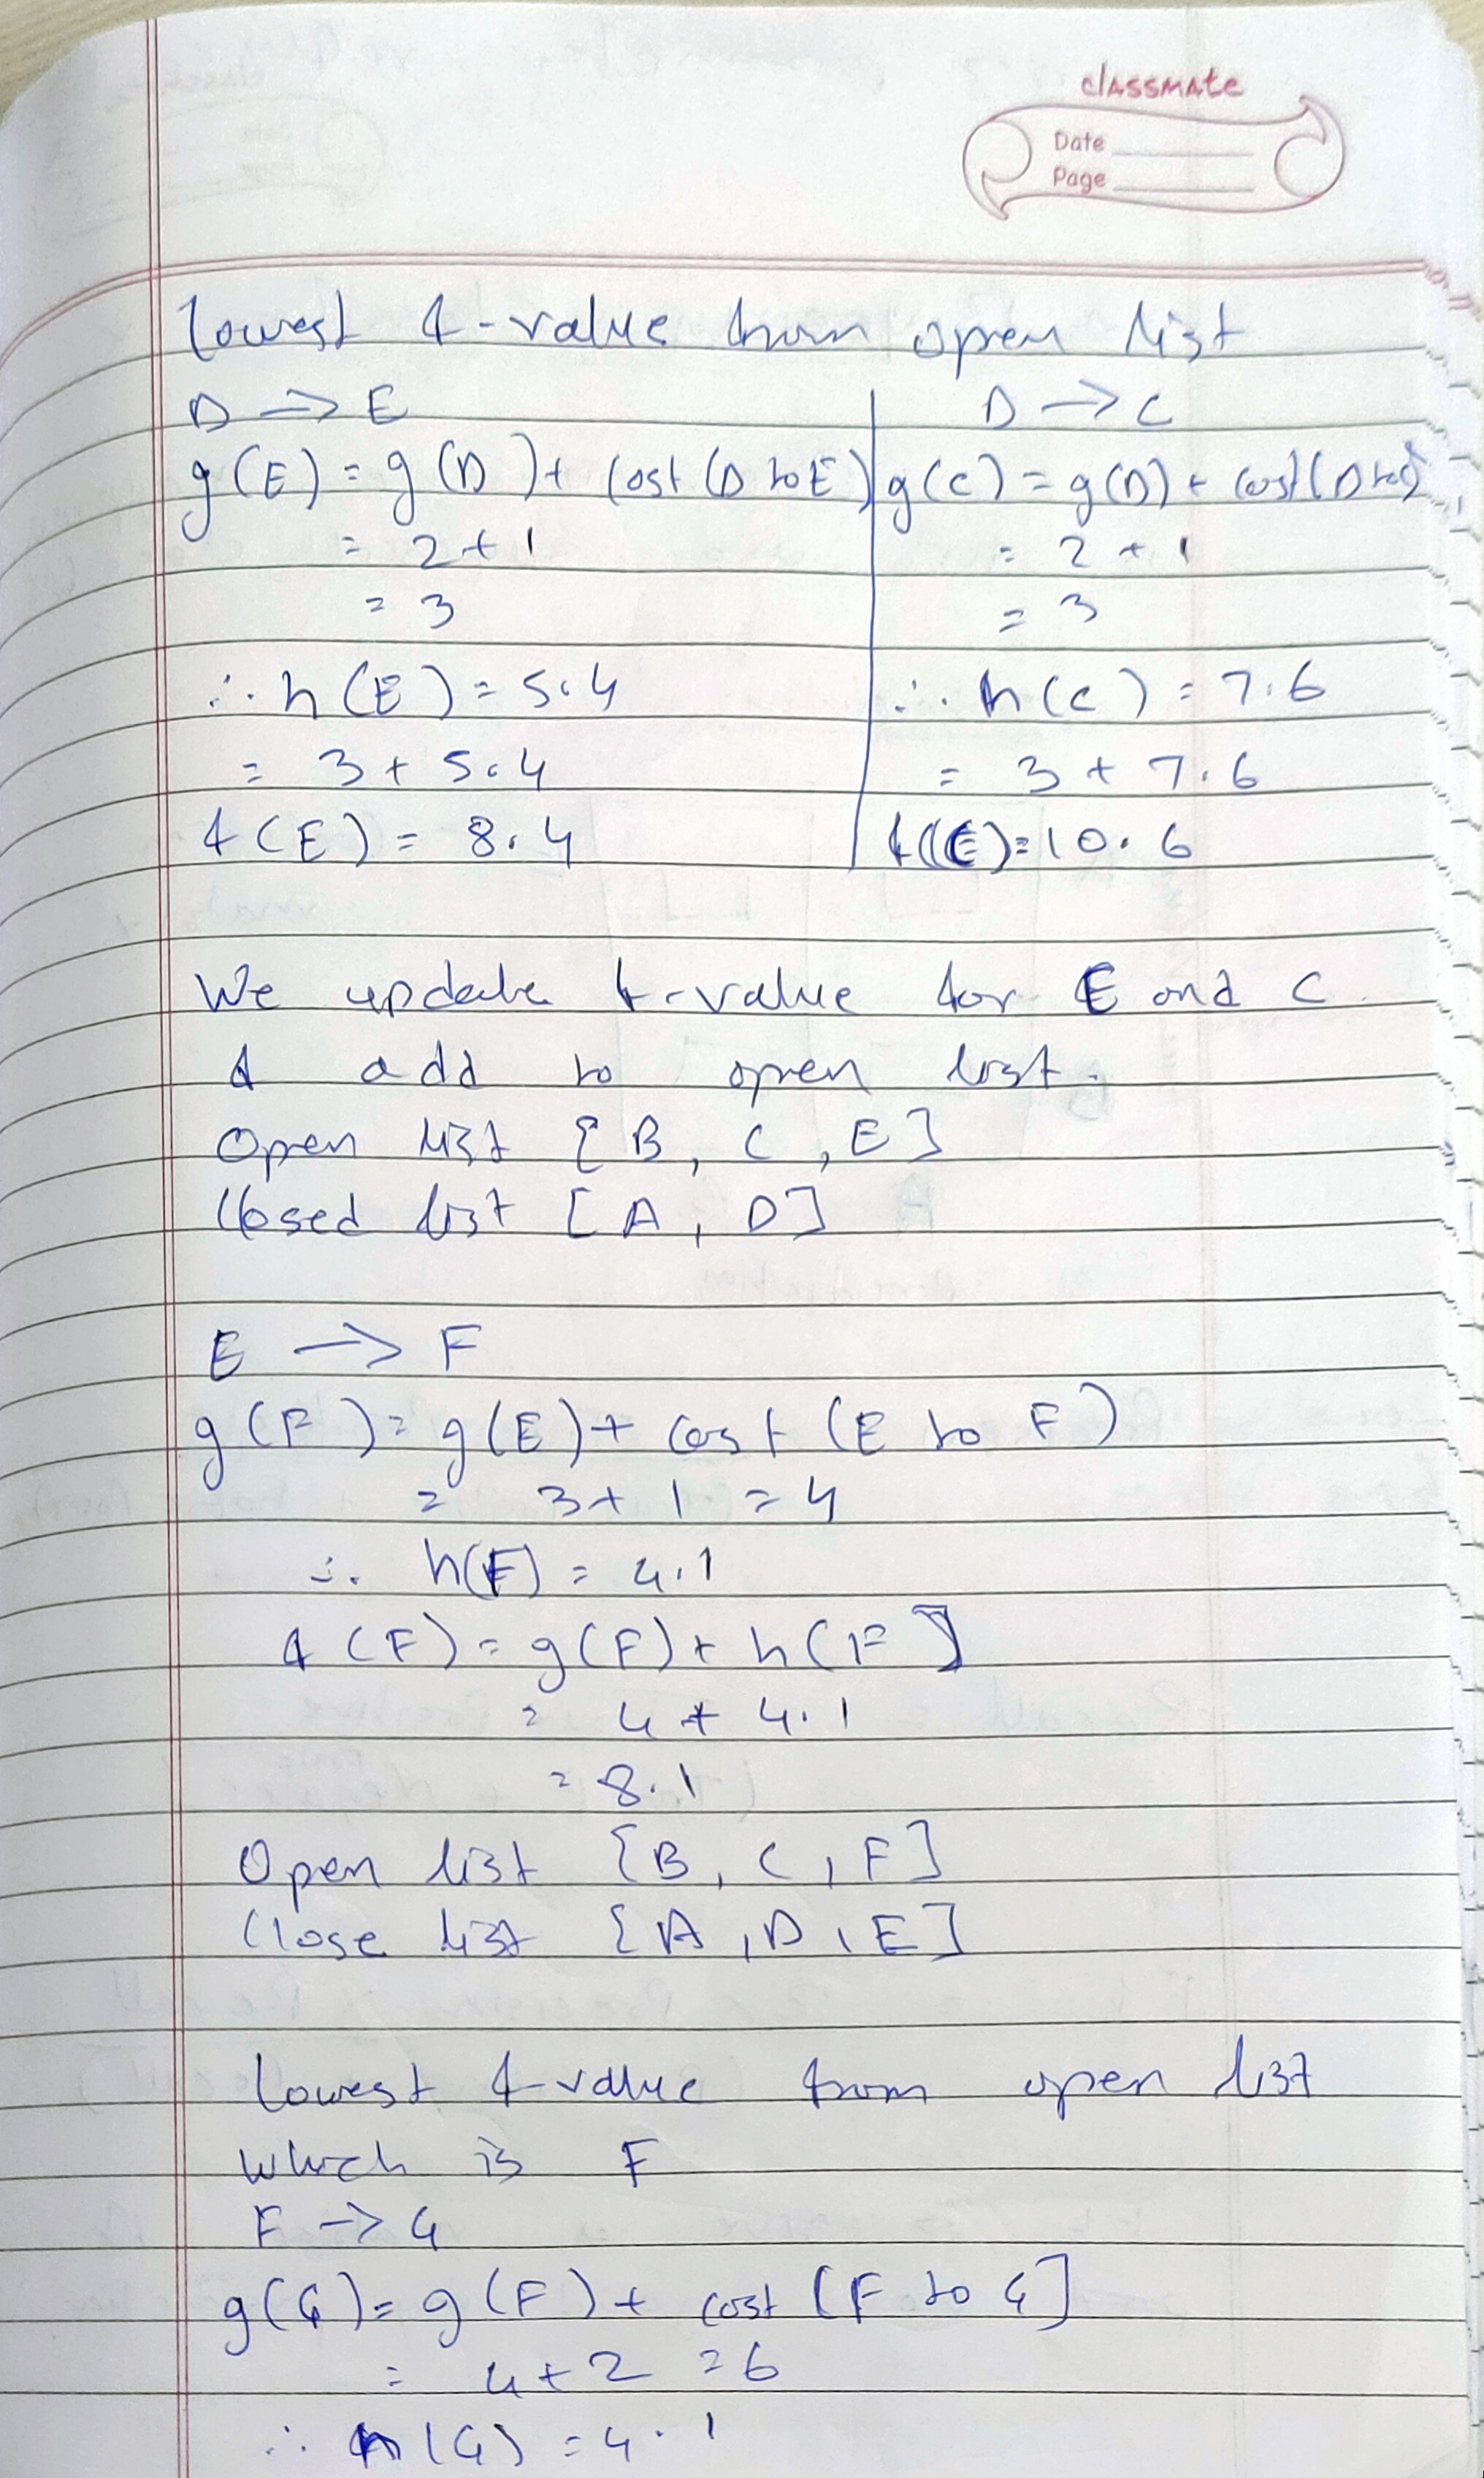 classmate
Date
Page
lowest f-value from open list
D → E
g(E) = g(D) + cost (D to E)
= 2+1
= 3
∴ h(E) = 5.4
= 3+5.4
f(E) = 8.4
D → C
g(C) = g(D) + cost (D to C)
= 2+1
= 3
∴ h(C) = 7.6
= 3+7.6
f(C) = 10.6
We update f-value for E and C
& add to open list.
Open list [B, C, E]
Closed list [A, D]
E → F
g(F) = g(E) + cost (E to F)
= 3+1 = 4
∴ h(F) = 4.1
f(F) = g(F) + h(F)
= 4+4.1
= 8.1
Open list [B, C, F]
Close list [A, D, E]
lowest f-value from open list
which is F
F → G
g(G) = g(F) + cost [F to G]
= 4+2 = 6
∴ h(G) = 4.1